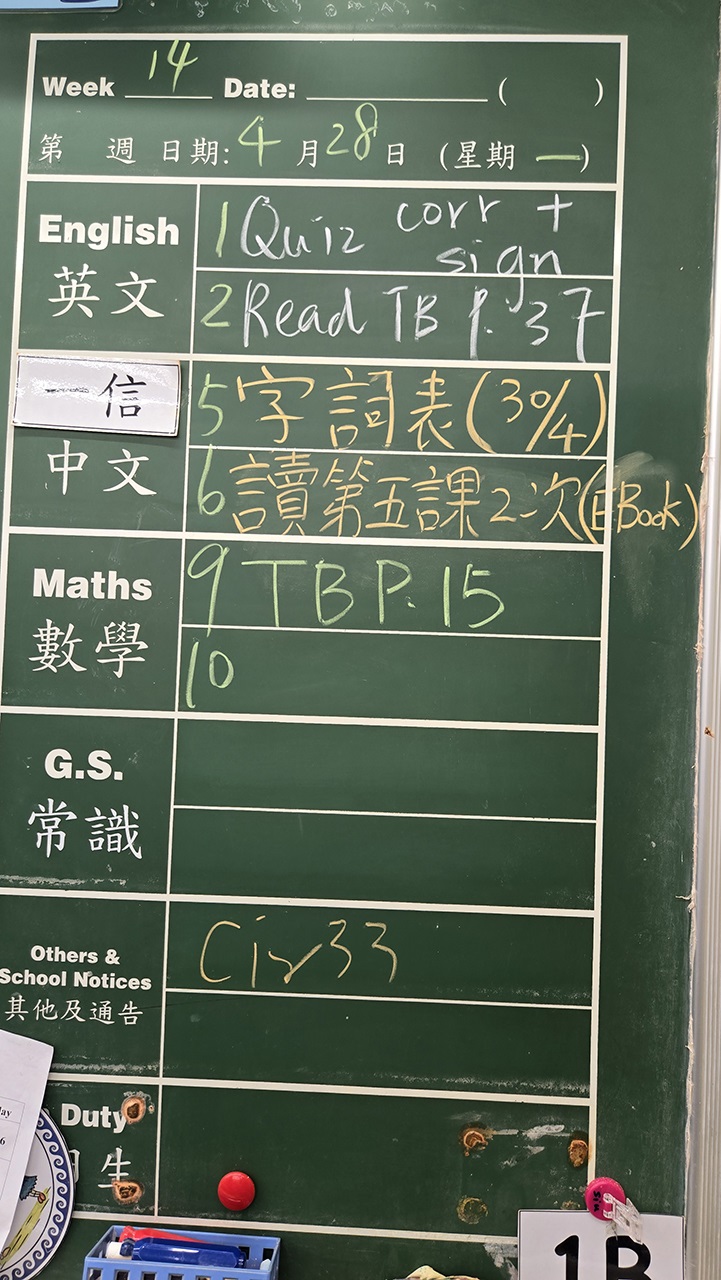 Week 14 Date: ( )
第 週 日期: 4月28日 (星期 一)
English
英文
1 Quiz corr +
sign
2 Read TB P. 37
一信
中文
5 字詞表(30/4)
6 讀第五課2次(EBook)
Maths
數學
9 TB P. 15
10
G.S.
常識
Others &
School Notices
其他及通告
Cir 33
Duty
生
1B